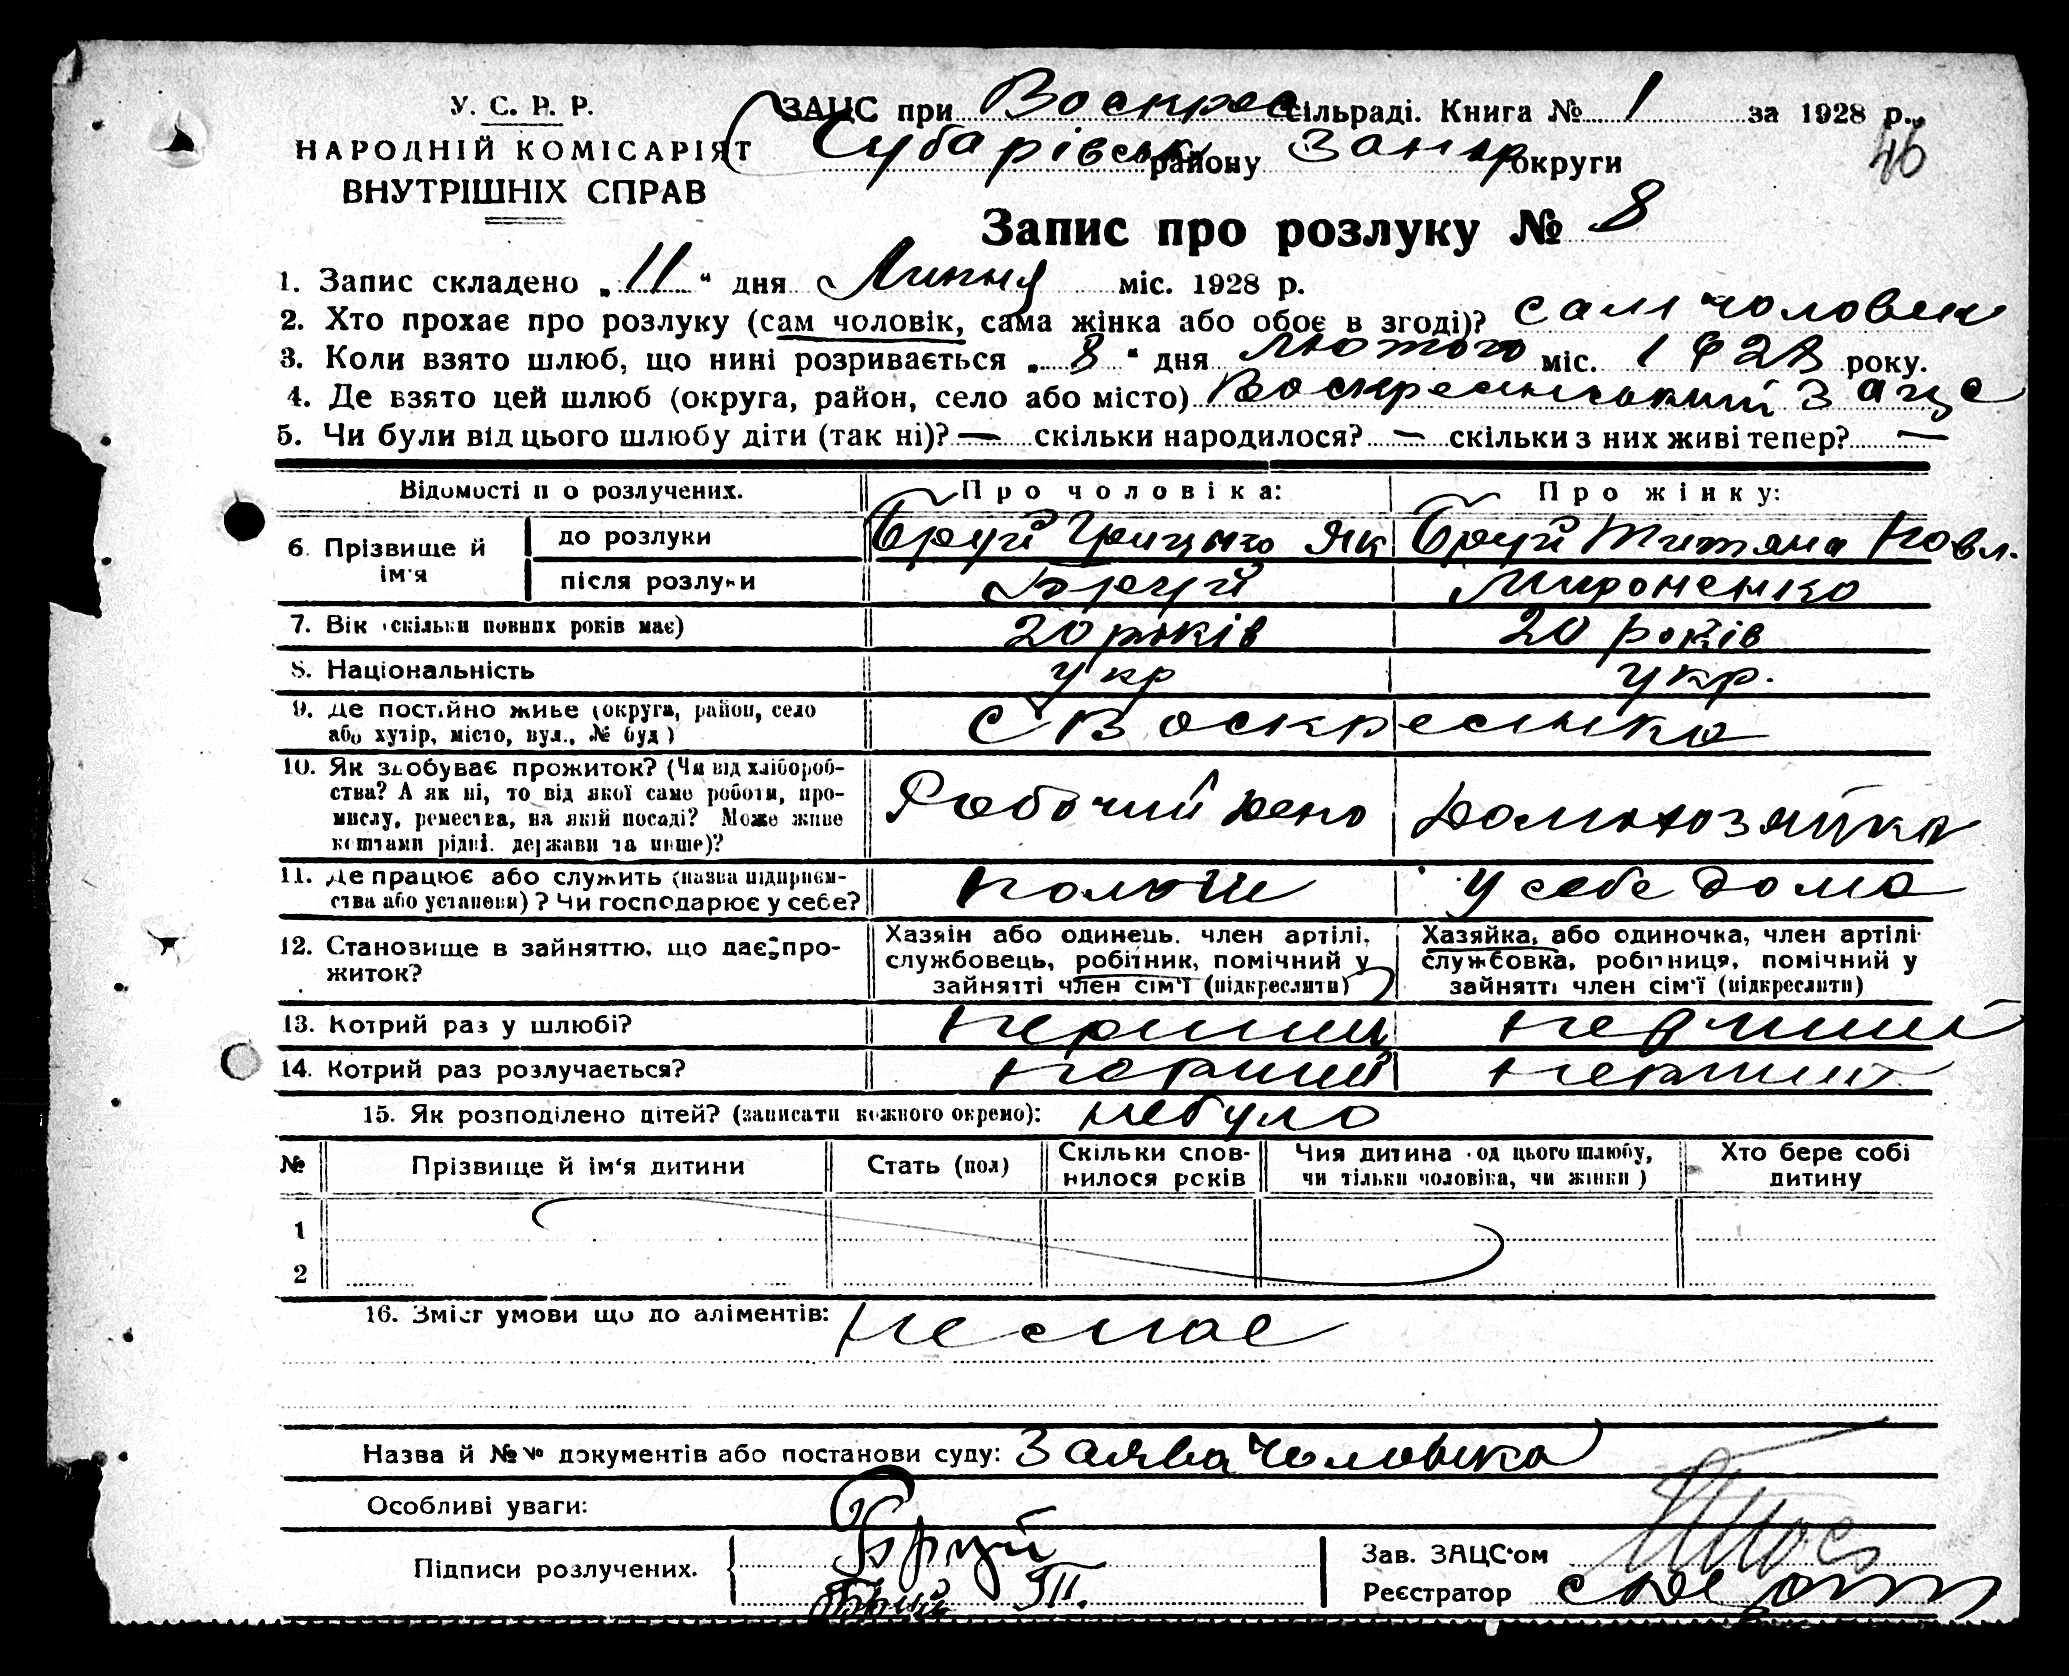 У. С. Р. Р.
НАРОДНІЙ КОМІСАРІЯТ
ВНУТРІШНІХ СПРАВ
ЗАЦС при Воскрес сільраді. Книга № 1 за 1928 р.
46
Чубарівськ району Запор округи
Запис про розлуку № 8
1. Запис складено „11“ дня Липня міс. 1928 р.
2. Хто прохає про розлуку (сам чоловік, сама жінка або обоє в згоді)? сам чоловик
3. Коли взято шлюб, що нині розривається „8“ дня Лютого міс. 1928 року.
4. Де взято цей шлюб (округа, район, село або місто) Воскресенський Зацс
5. Чи були від цього шлюбу діти (так ні)? — скільки народилося? — скільки з них живі тепер? —
Відомості п о розлучених. Про чоловіка: Про жінку:
6. Прізвище й ім'я
до розлуки Бруй Грицько Як Бруй Титяна Павл.
після розлуки Бруй Мироненко
7. Вік (скільки повних років має) 20 років 20 років
8. Національність укр укр.
9. Де постійно живе (округа, район, село або хутір, місто, вул., № буд) С Воскресенка
10. Як здобуває прожиток? (Чи від хлібороб-
ства? А як ні, то від якої саме роботи, про-
мислу, ремества, на якій посаді? Може живе
коштами рідні, держави та инше)?
Робочий Домохозяйка
11. Де працює або служить (назва підприєм-
ства або установи)? Чи господарює у себе?
у себе дома
12. Становище в зайняттю, що дає про-
житок?
Хазяін або одинець, член артілі,
службовець, робітник, помічний у
зайнятті член сім'ї (підкреслити)
Хазяйка, або одиночка, член артілі
службовка, робітниця, помічний у
зайнятті член сім'ї (підкреслити)
13. Котрий раз у шлюбі? перший перший
14. Котрий раз розлучається? перший перший
15. Як розподілено дітей? (записати кожного окремо): небуло
№ Прізвище й ім'я дитини Стать (пол) Скільки спов-
нилося років Чия дитина од цього шлюбу,
чи тільки чоловіка, чи жінки) Хто бере собі
дитину
1
2
16. Зміст умови що до аліментів: Немає
Назва й №№ документів або постанови суду: Заява Чоловика
Особливі уваги:
Підписи розлучених. Бруй
Бруй ТП.
Зав. ЗАЦС'ом
Реєстратор